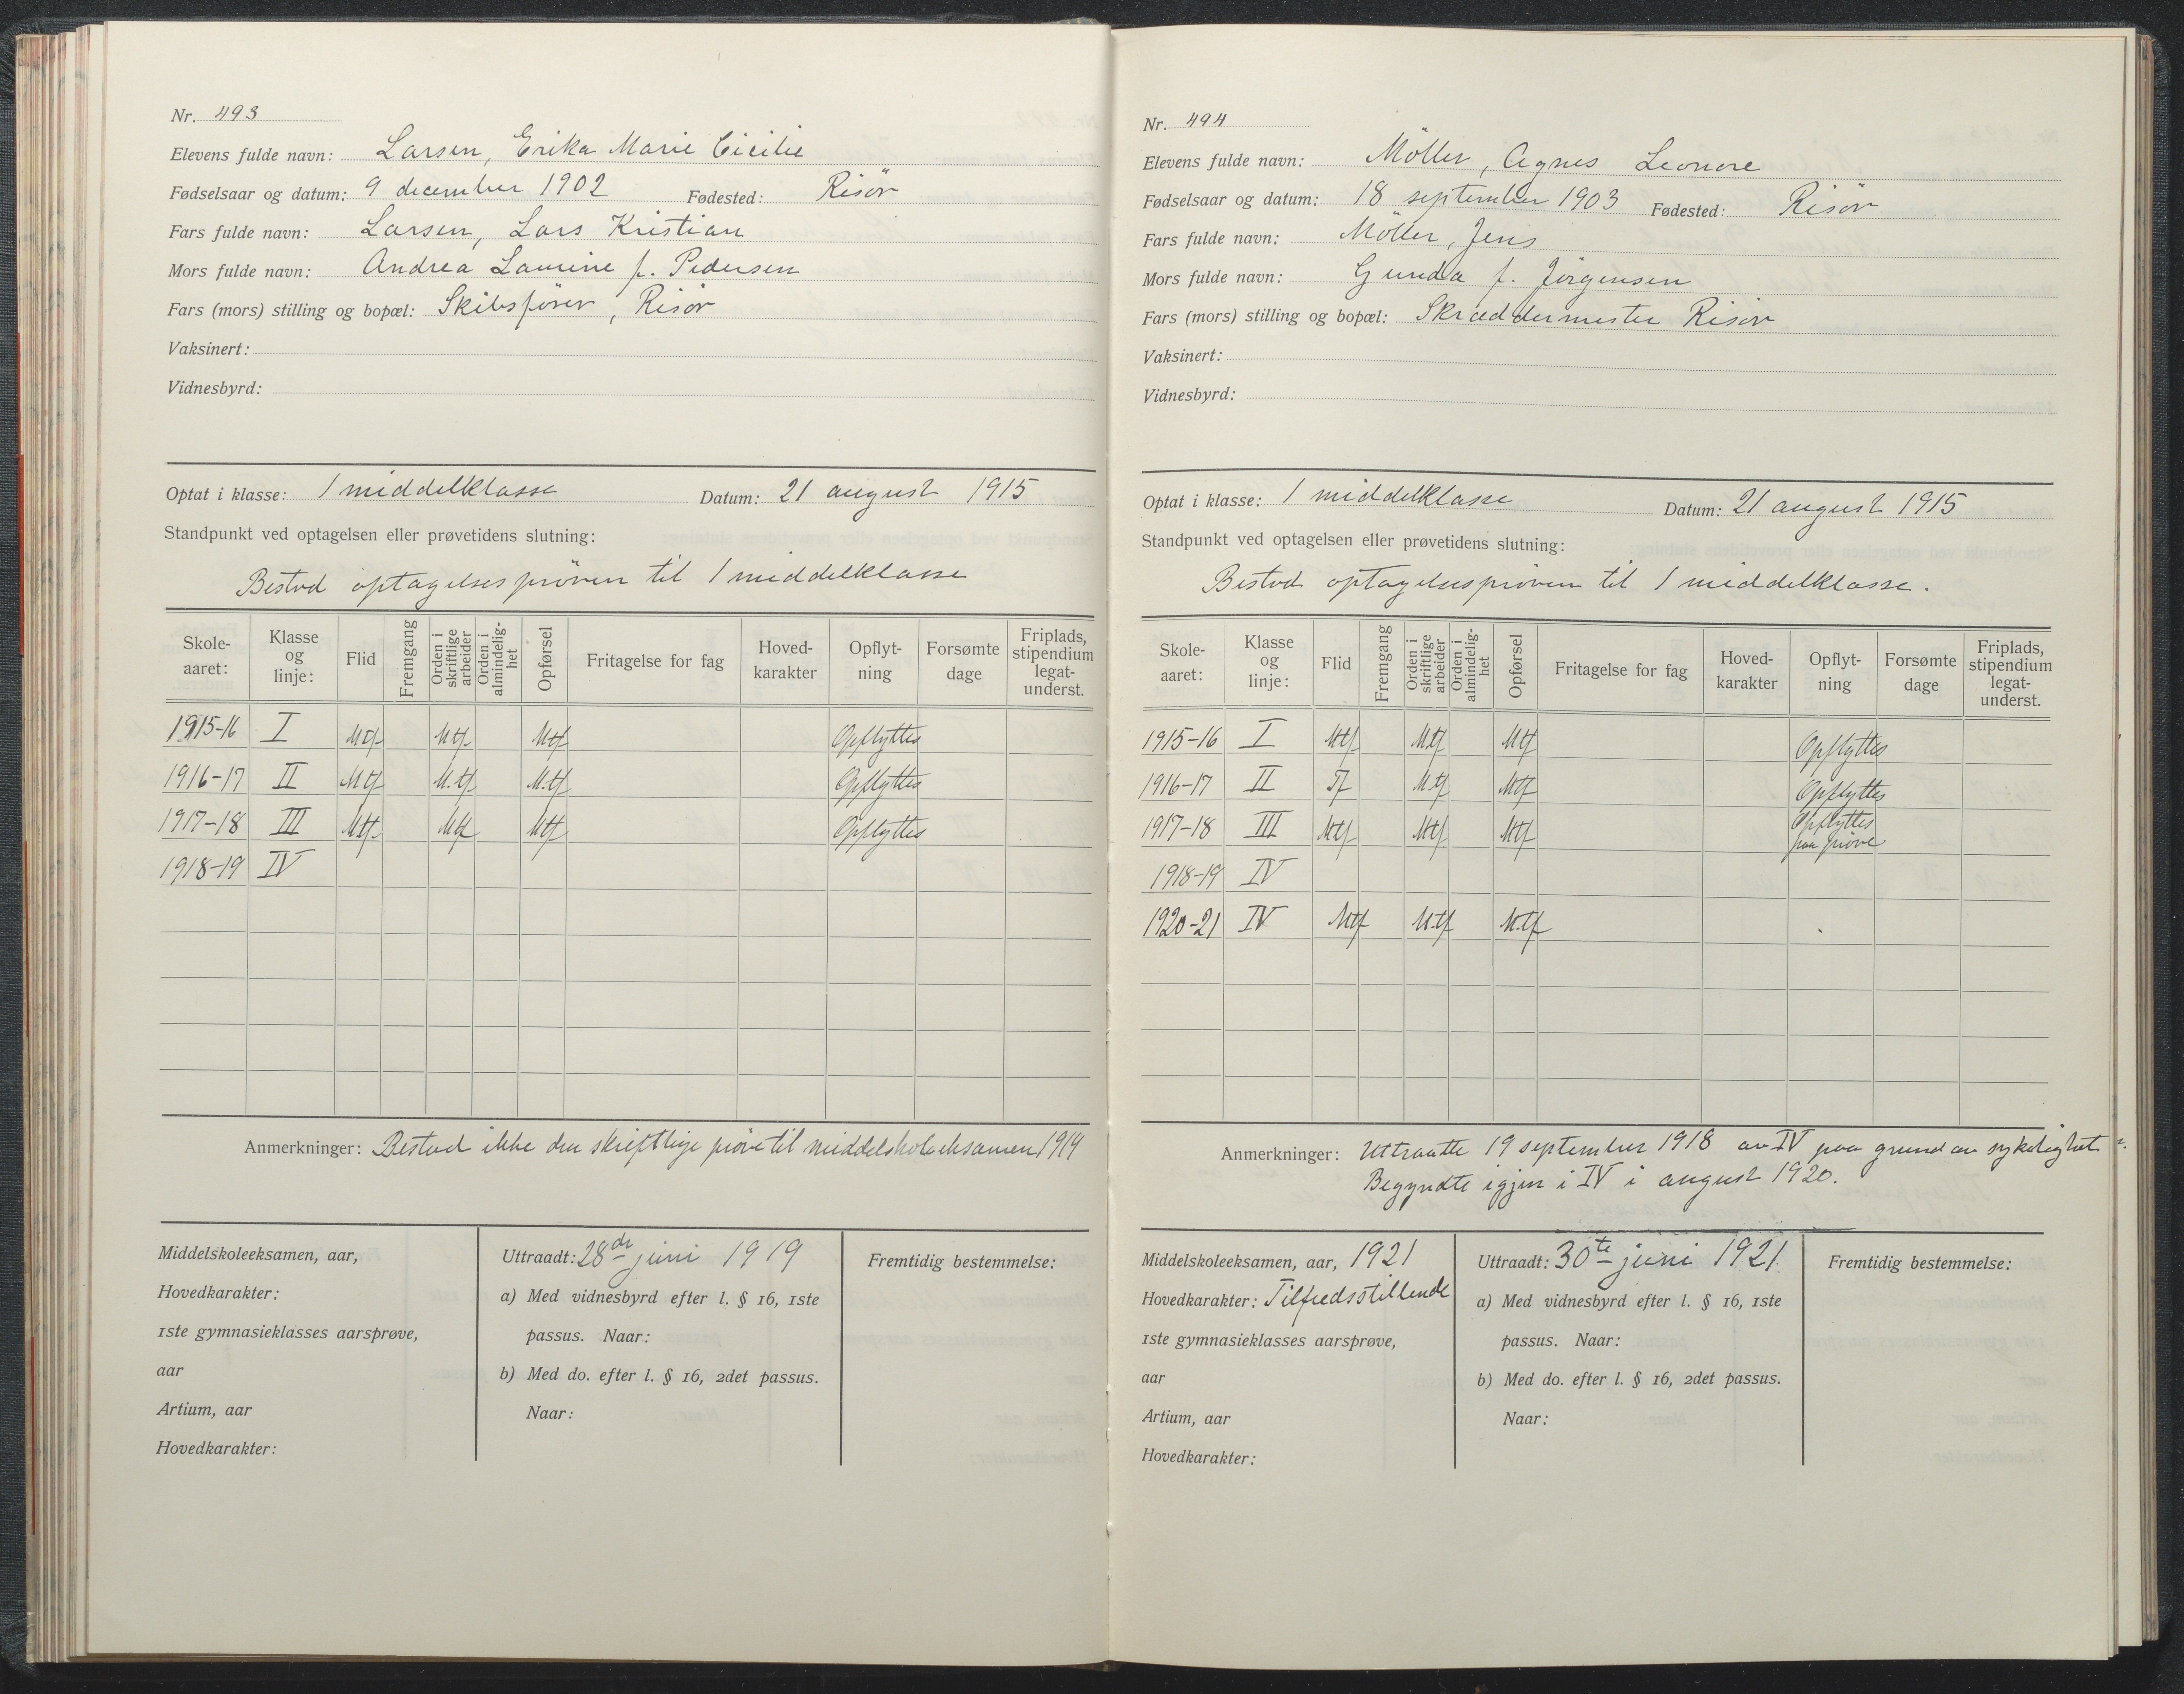 Nr. 493
Elevens fulde navn: Larsen, Erika Marie Cicilie
Fødselsaar og datum: 9 december 1902 Fødested: Risör
Fars fulde navn: Larsen, Lars Kristian
Mors fulde navn: Andrea Laurine f. Pedersen
Fars (mors) stilling og bopæl: Skibsfører, Risör
Vaksinert:
Vidnesbyrd:
Optat i klasse: I middelklasse Datum: 21 august 1915
Standpunkt ved optagelsen eller prøvetidens slutning:
Bestod optagelsesprøven til I middelklasse
Skole-aaret: Klasse og linje: Flid Fremgang Orden i skriftlige arbeider Orden i almindelig-het Opførsel Fritagelse for fag Hoved-karakter Opflyt-ning Forsømte dage Friplads, stipendium legat-underst.
1915-16 I Mtf Mtf Mtf Opflyttes
1916-17 II Mtf M.tf M.tf Opflyttes
1917-18 III Mtf Mtf Mtf Opflyttes
1918-19 IV
Anmerkninger: Bestod ikke den skriftlige prøve til middelskoleeksamen 1919
Middelskoleeksamen, aar,
Hovedkarakter:
1ste gymnasieklasses aarsprøve,
aar
Artium, aar
Hovedkarakter:
Uttraadt: 28de juni 1919
a) Med vidnesbyrd efter l. § 16, 1ste
passus. Naar:
b) Med do. efter l. § 16, 2det passus.
Naar:
Fremtidig bestemmelse:
Nr. 494
Elevens fulde navn: Möller, Agnes Leonore
Fødselsaar og datum: 18 september 1903 Fødested: Risör
Fars fulde navn: Möller, Jens
Mors fulde navn: Gunda f. Jörgensen
Fars (mors) stilling og bopæl: Skræddermester Risör
Vaksinert:
Vidnesbyrd:
Optat i klasse: I middelklasse Datum: 21 august 1915
Standpunkt ved optagelsen eller prøvetidens slutning:
Bestod optagelsesprøven til I middelklasse.
Skole-aaret: Klasse og linje: Flid Fremgang Orden i skriftlige arbeider Orden i almindelig-het Opførsel Fritagelse for fag Hoved-karakter Opflyt-ning Forsømte dage Friplads, stipendium legat-underst.
1915-16 I Mtf Mtf Mtf Opflyttes
1916-17 II Tf M.tf Mtf Opflyttes
1917-18 III Mtf Mtf Mtf Opflyttes paa prøve
1918-19 IV
1920-21 IV Mtf M.tf M.tf
Anmerkninger: Uttraatte 19 september 1918 av IV paa grund av sykelighet.
Begyndte igjen i IV i august 1920.
Middelskoleeksamen, aar, 1921
Hovedkarakter: Tilfredsstillende
1ste gymnasieklasses aarsprøve,
aar
Artium, aar
Hovedkarakter:
Uttraadt: 30te juni 1921
a) Med vidnesbyrd efter l. § 16, 1ste
passus. Naar:
b) Med do. efter l. § 16, 2det passus.
Naar:
Fremtidig bestemmelse: